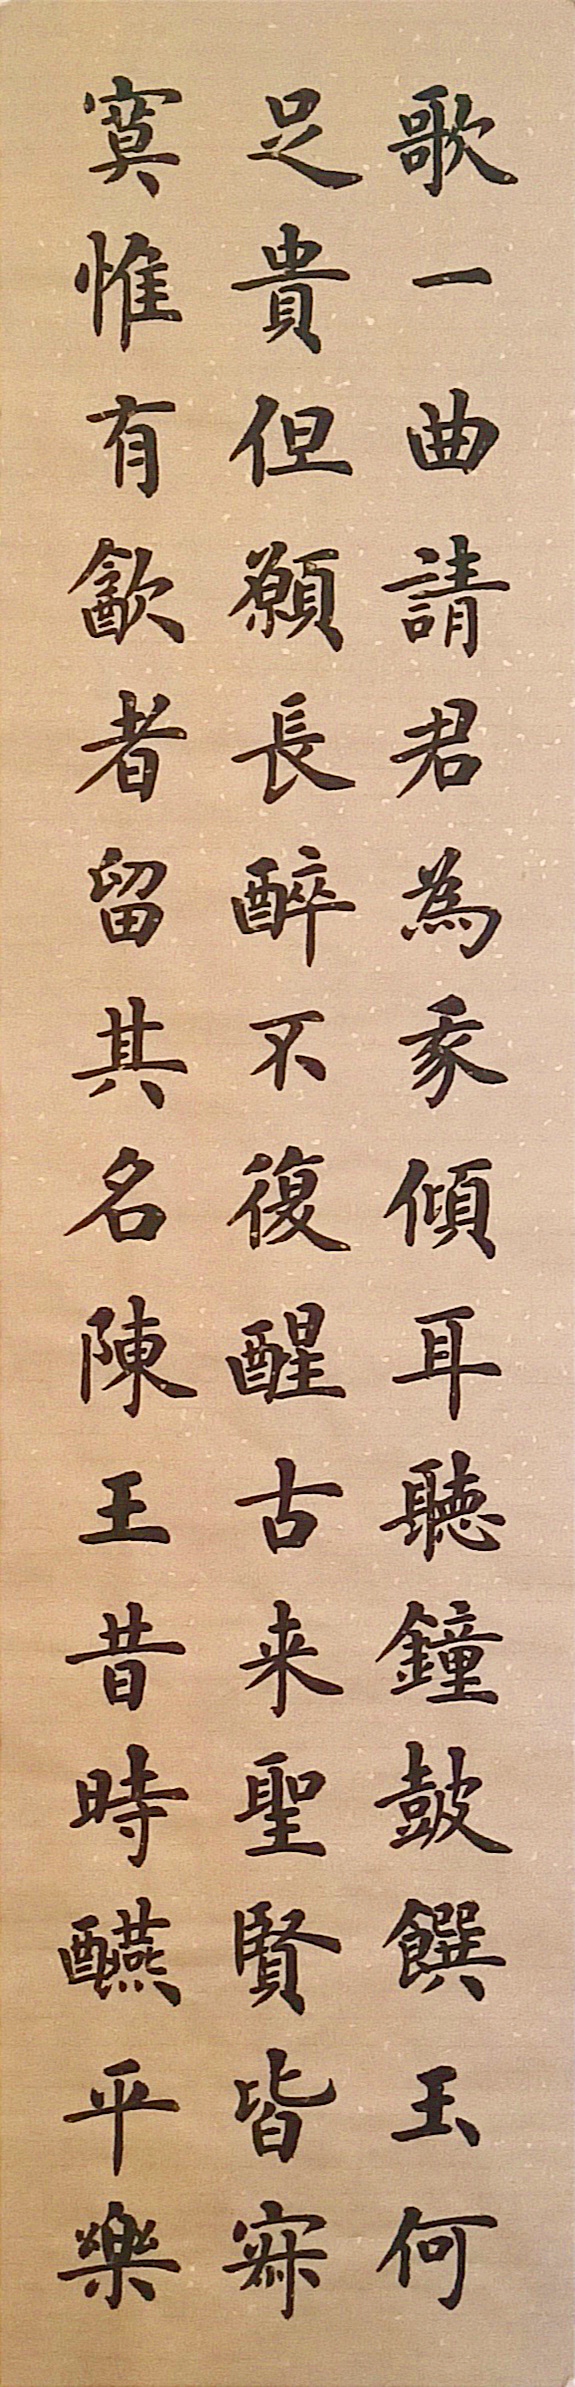 歌一曲請君為我傾耳聽鐘鼓饌玉何
足貴但願長醉不復醒古来聖賢皆寂
寞惟有飲者留其名陳王昔時醼平樂